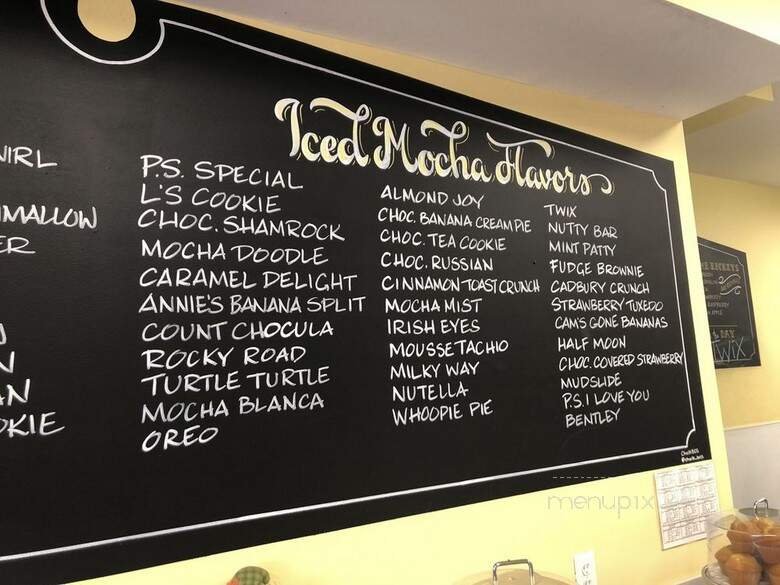 Iced Mocha Flavors
P.S. SPECIAL
L'S COOKIE
CHOC. SHAMROCK
MOCHA DOODLE
CARAMEL DELIGHT
ANNIE'S BANANA SPLIT
COUNT CHOCULA
ROCKY ROAD
TURTLE TURTLE
MOCHA BLANCA
OREO
ALMOND JOY
CHOC. BANANA CREAM PIE
CHOC. TEA COOKIE
CHOC. RUSSIAN
CINNAMON TOAST CRUNCH
MOCHA MIST
IRISH EYES
MOUSSETACHIO
MILKY WAY
NUTELLA
WHOOPIE PIE
TWIX
NUTTY BAR
MINT PATTY
FUDGE BROWNIE
CADBURY CRUNCH
STRAWBERRY TUXEDO
CAM'S GONE BANANAS
HALF MOON
CHOC. COVERED STRAWBERRY
MUDSLIDE
P.S. I LOVE YOU
BENTLEY
menupix